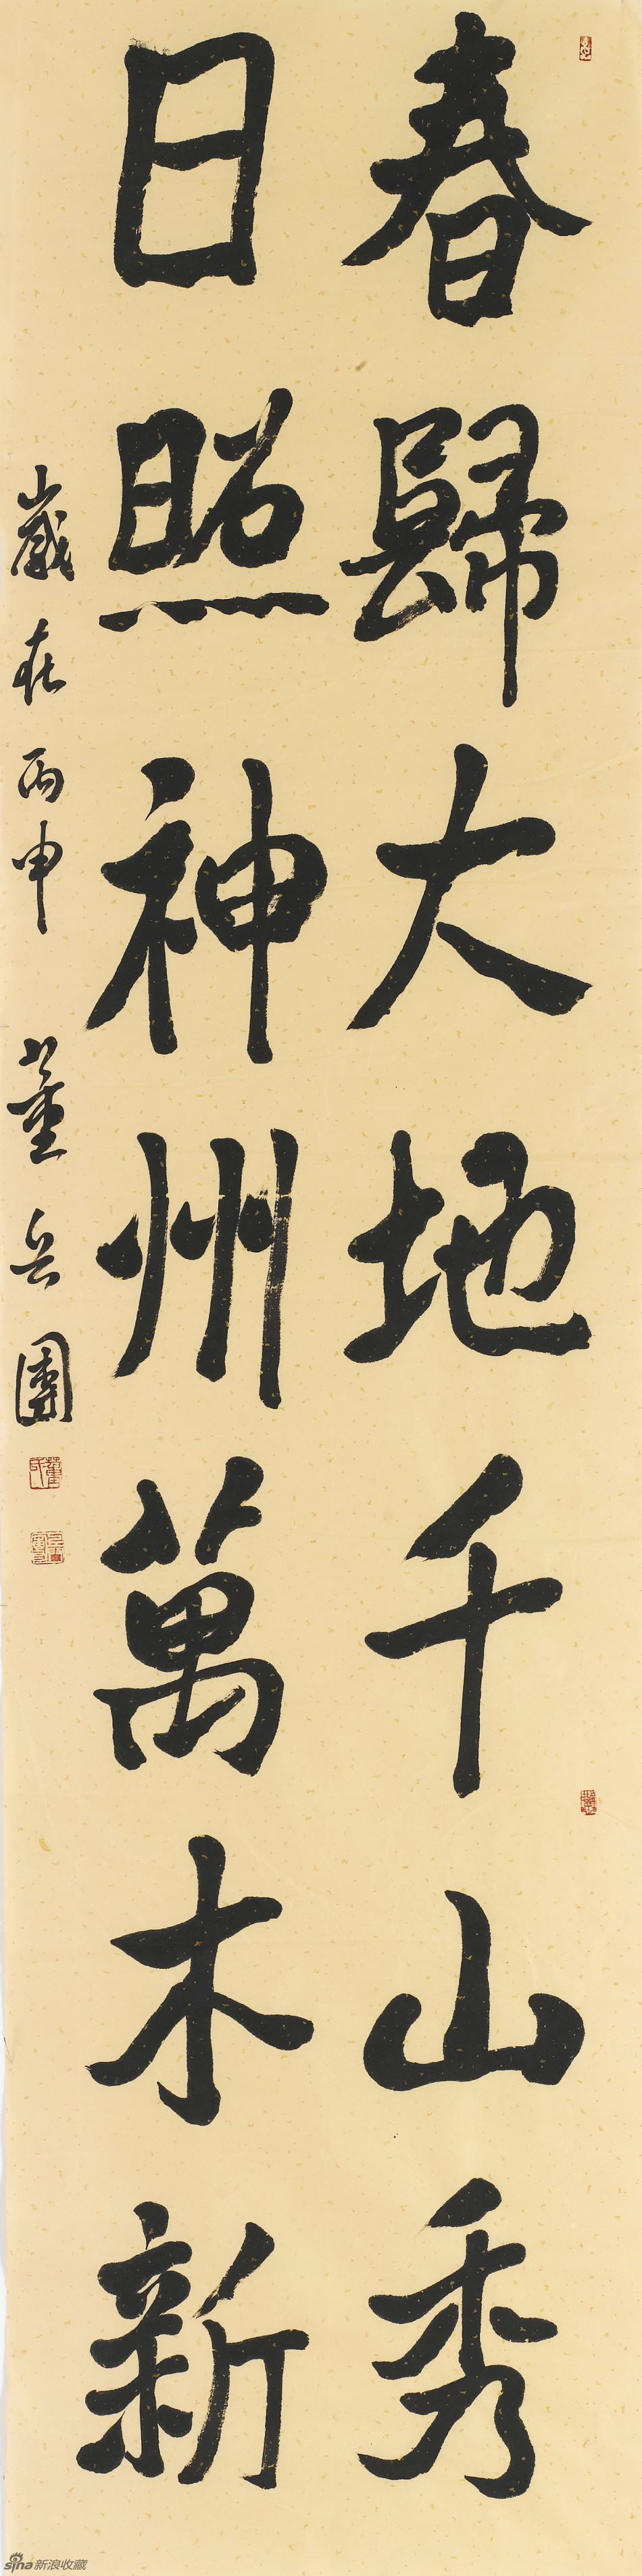 春歸大地千山秀
日照神州萬木新
歲在丙申 董岳團
sina新浪收藏